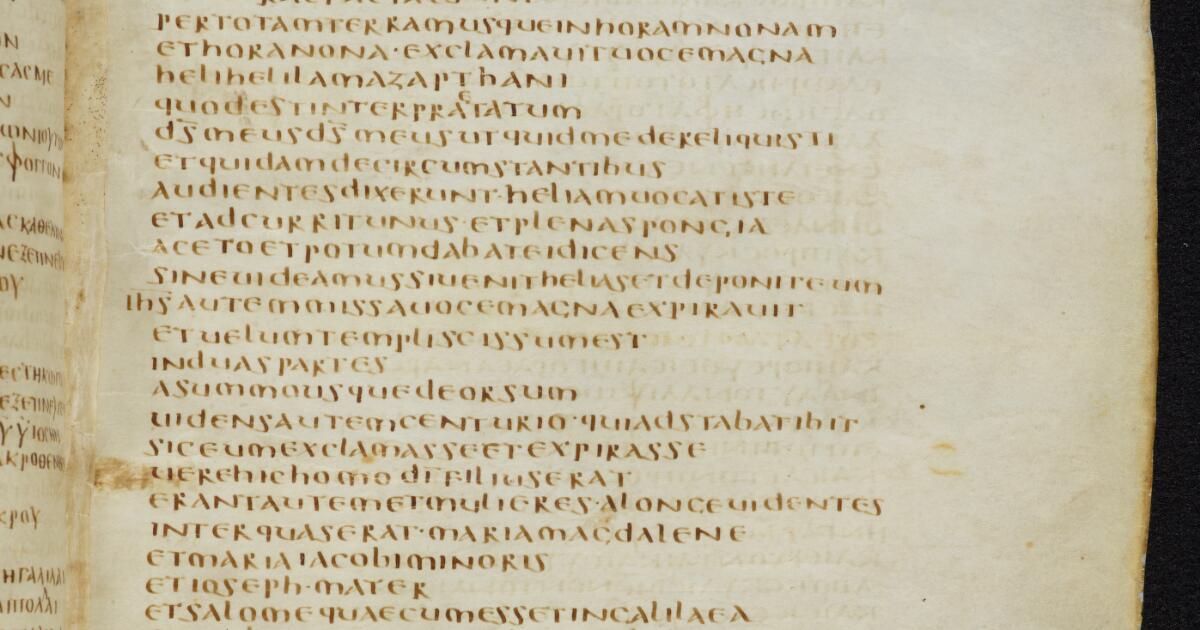 pertotamterramusqueinhoramnonam
ethoranona·exclamauituocemagna
helihelilamazapthani
quodestinterpraetatum
ds̄meusds̄meusutquidmedereliquisti
etquidamdecircumstantibus
audientesdixerunt·heliamuocatiste
etadcurritunus·etplenaspongia
acetoetpotumdabateidicens
sineuideamussiuenitheliasetdeponiteum
ihs̄autemmissauocemagnaexpirauit
etuelumtempliscissumest
induaspartes
asummousquedeorsum
uidensautemcenturio·quiadstabatibit
siceumexclamasseetexpirasse
uerehichomodīfiliuserat
erantautemetmulieres·alongeuidentes
interquaserat·mariamagdalene
etmariaiacobiminoris
etioseph·mater
etsalomequaecumessetingalilaea